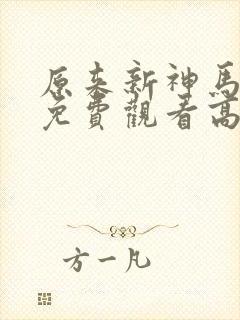 原来新神馬
免費觀看高
方一凡